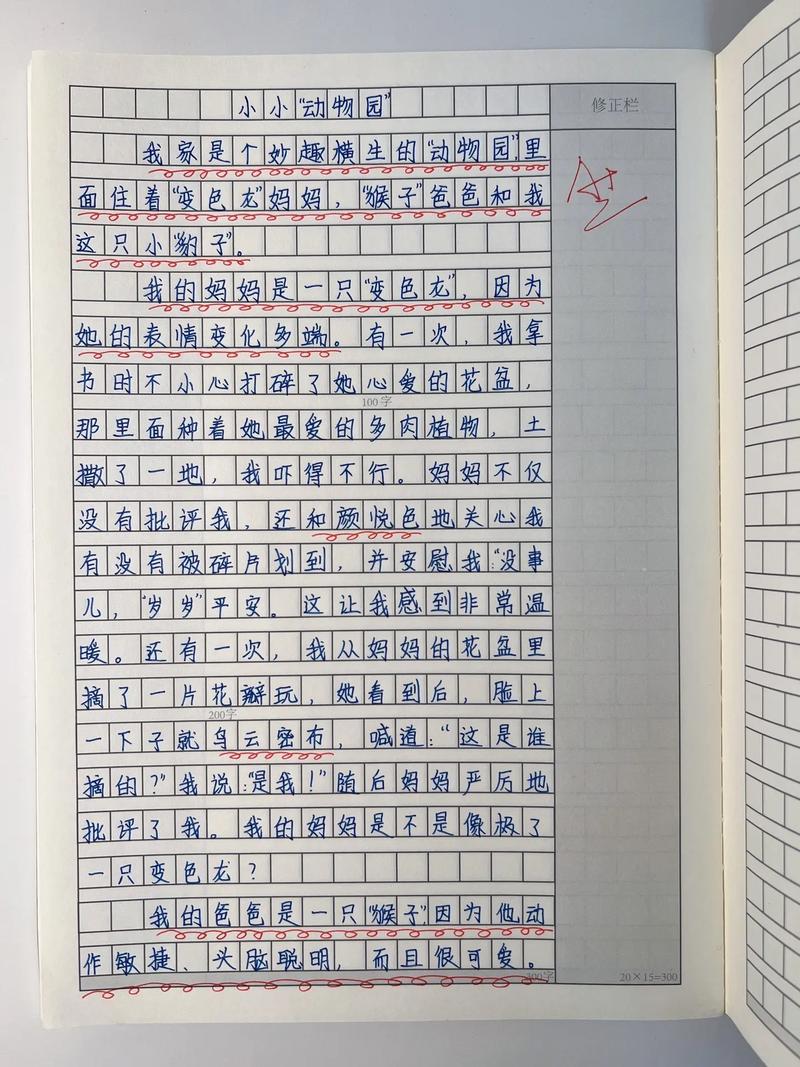 小小“动物园”
修正栏
A+
我家是个妙趣横生的“动物园”,里
面住着“变色龙”妈妈，“猴子”爸爸和我
这只小“豹子”。
我的妈妈是一只“变色龙”，因为
她的表情变化多端。有一次，我拿
书时不小心打碎了她心爱的花盆，
100字
那里面种着她最爱的多肉植物，土
撒了一地，我吓得不行。妈妈不仅
没有批评我，还和颜悦色地关心我
有没有被碎片划到，并安慰我：“没事
儿，“岁岁”平安。这让我感到非常温
暖。还有一次，我从妈妈的花盆里
摘了一片花瓣玩，她看到后，脸上
200字
一下子就乌云密布，喊道：“这是谁
摘的？”我说：“是我！”随后妈妈严厉地
批评了我。我的妈妈是不是像极了
一只变色龙？
我的爸爸是一只“猴子”,因为他动
作敏捷、头脑聪明，而且很可爱。
300字
20×15=300